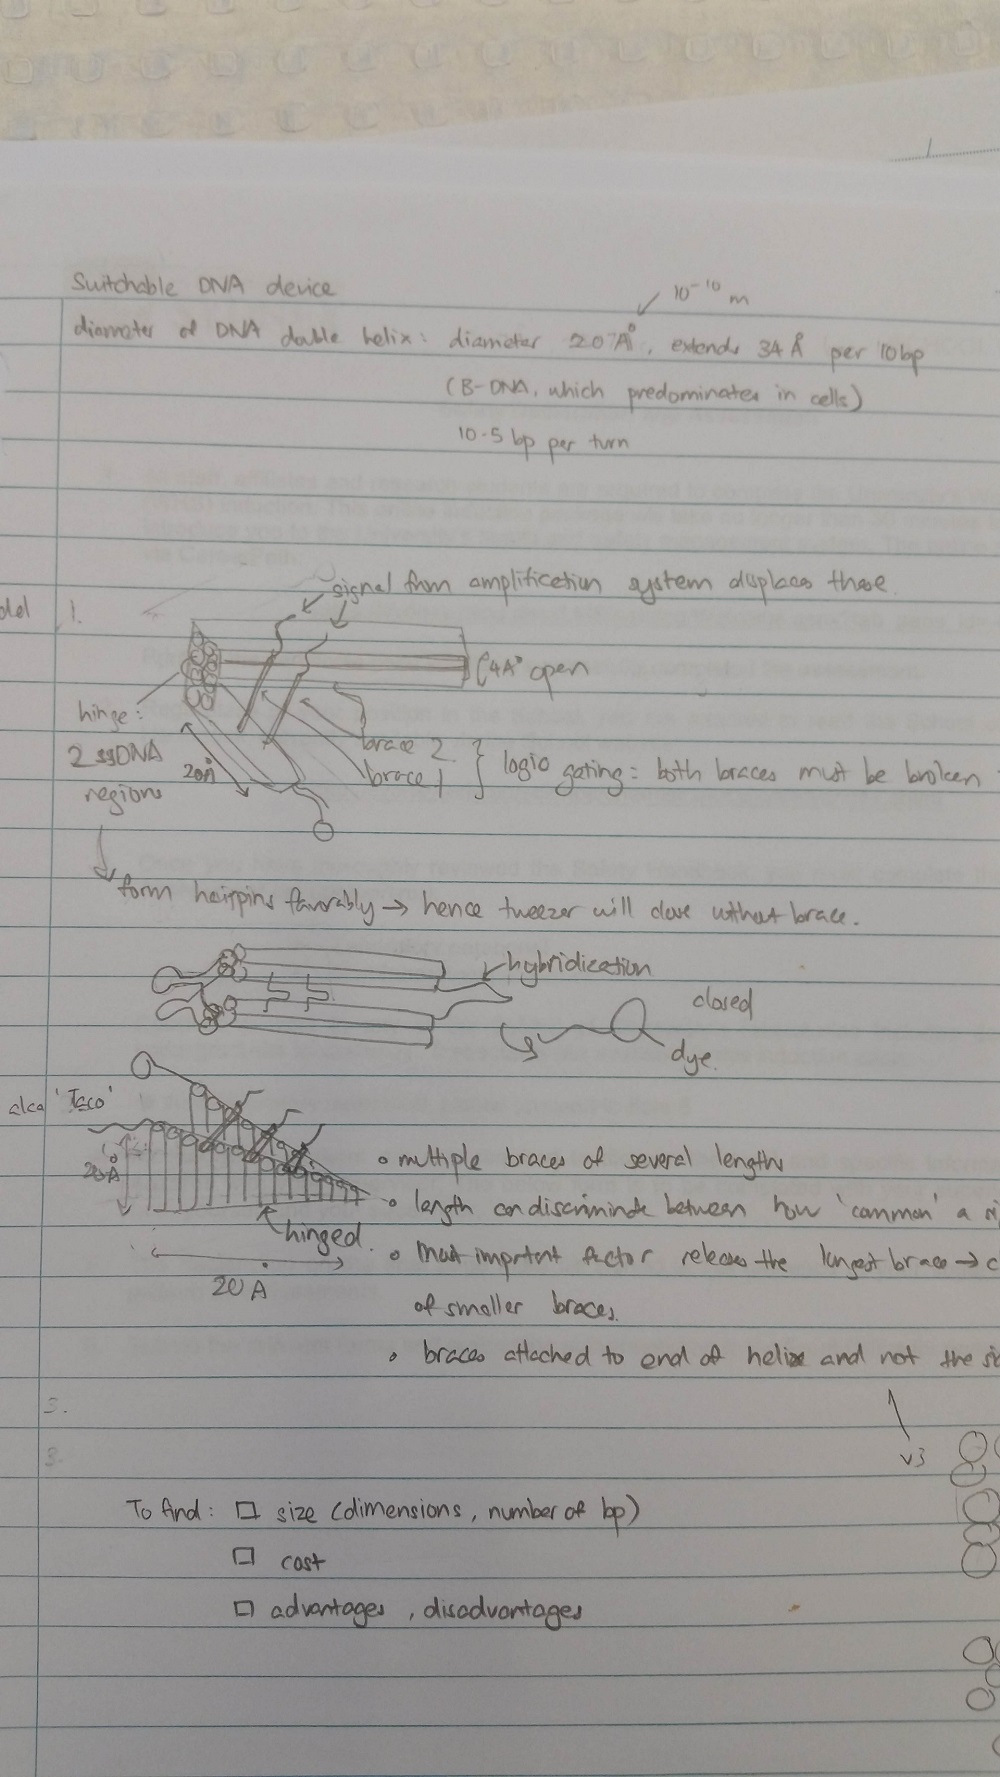 Switchable DNA device
10⁻¹⁰ m
diameter of DNA double helix: diameter 20 Å, extends 34 Å per 10bp
(B-DNA, which predominates in cells)
10.5 bp per turn
signal from amplification system displaces these.
del 1.
open
hinge:
2 ssDNA
regions
20Å
brace 2
brace 1
logic gating: both braces must be broken
form hairpins favorably → hence tweezer will close without brace.
hybridization
closed
dye.
aka 'Taco'
20Å
• multiple braces of several lengths
• length can discriminate between how 'common' a
hinged.
• Most important factor releases the longest brace →
20 Å
of smaller braces.
• braces attached to end of helix and not the
3.
v3
3.
To find: □ size (dimensions, number of bp)
□ cost
□ advantages, disadvantages